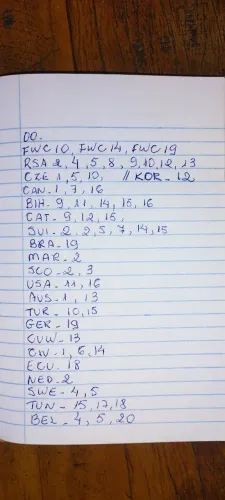 00.
FWC10, FWC14, FWC19
RSA 2, 4, 5, 8, 9, 10, 12, 13
CZE 1, 5, 10, // KOR - 12
CAN - 1, 7, 16
BIH - 9, 11, 14, 15, 16
CAT - 9, 12, 15,
SUI - 2, 2, 5, 7, 14, 15
BRA - 19
MAR - 2
SCO - 2, 3
USA - 11, 16
AUS - 1, 13
TUR - 10, 15
GER - 19
CUW - 13
CIV - 1, 6, 14
ECU. 18
NED - 2
SWE - 4, 5
TUN - 15, 17, 18
BEL - 4, 5, 20